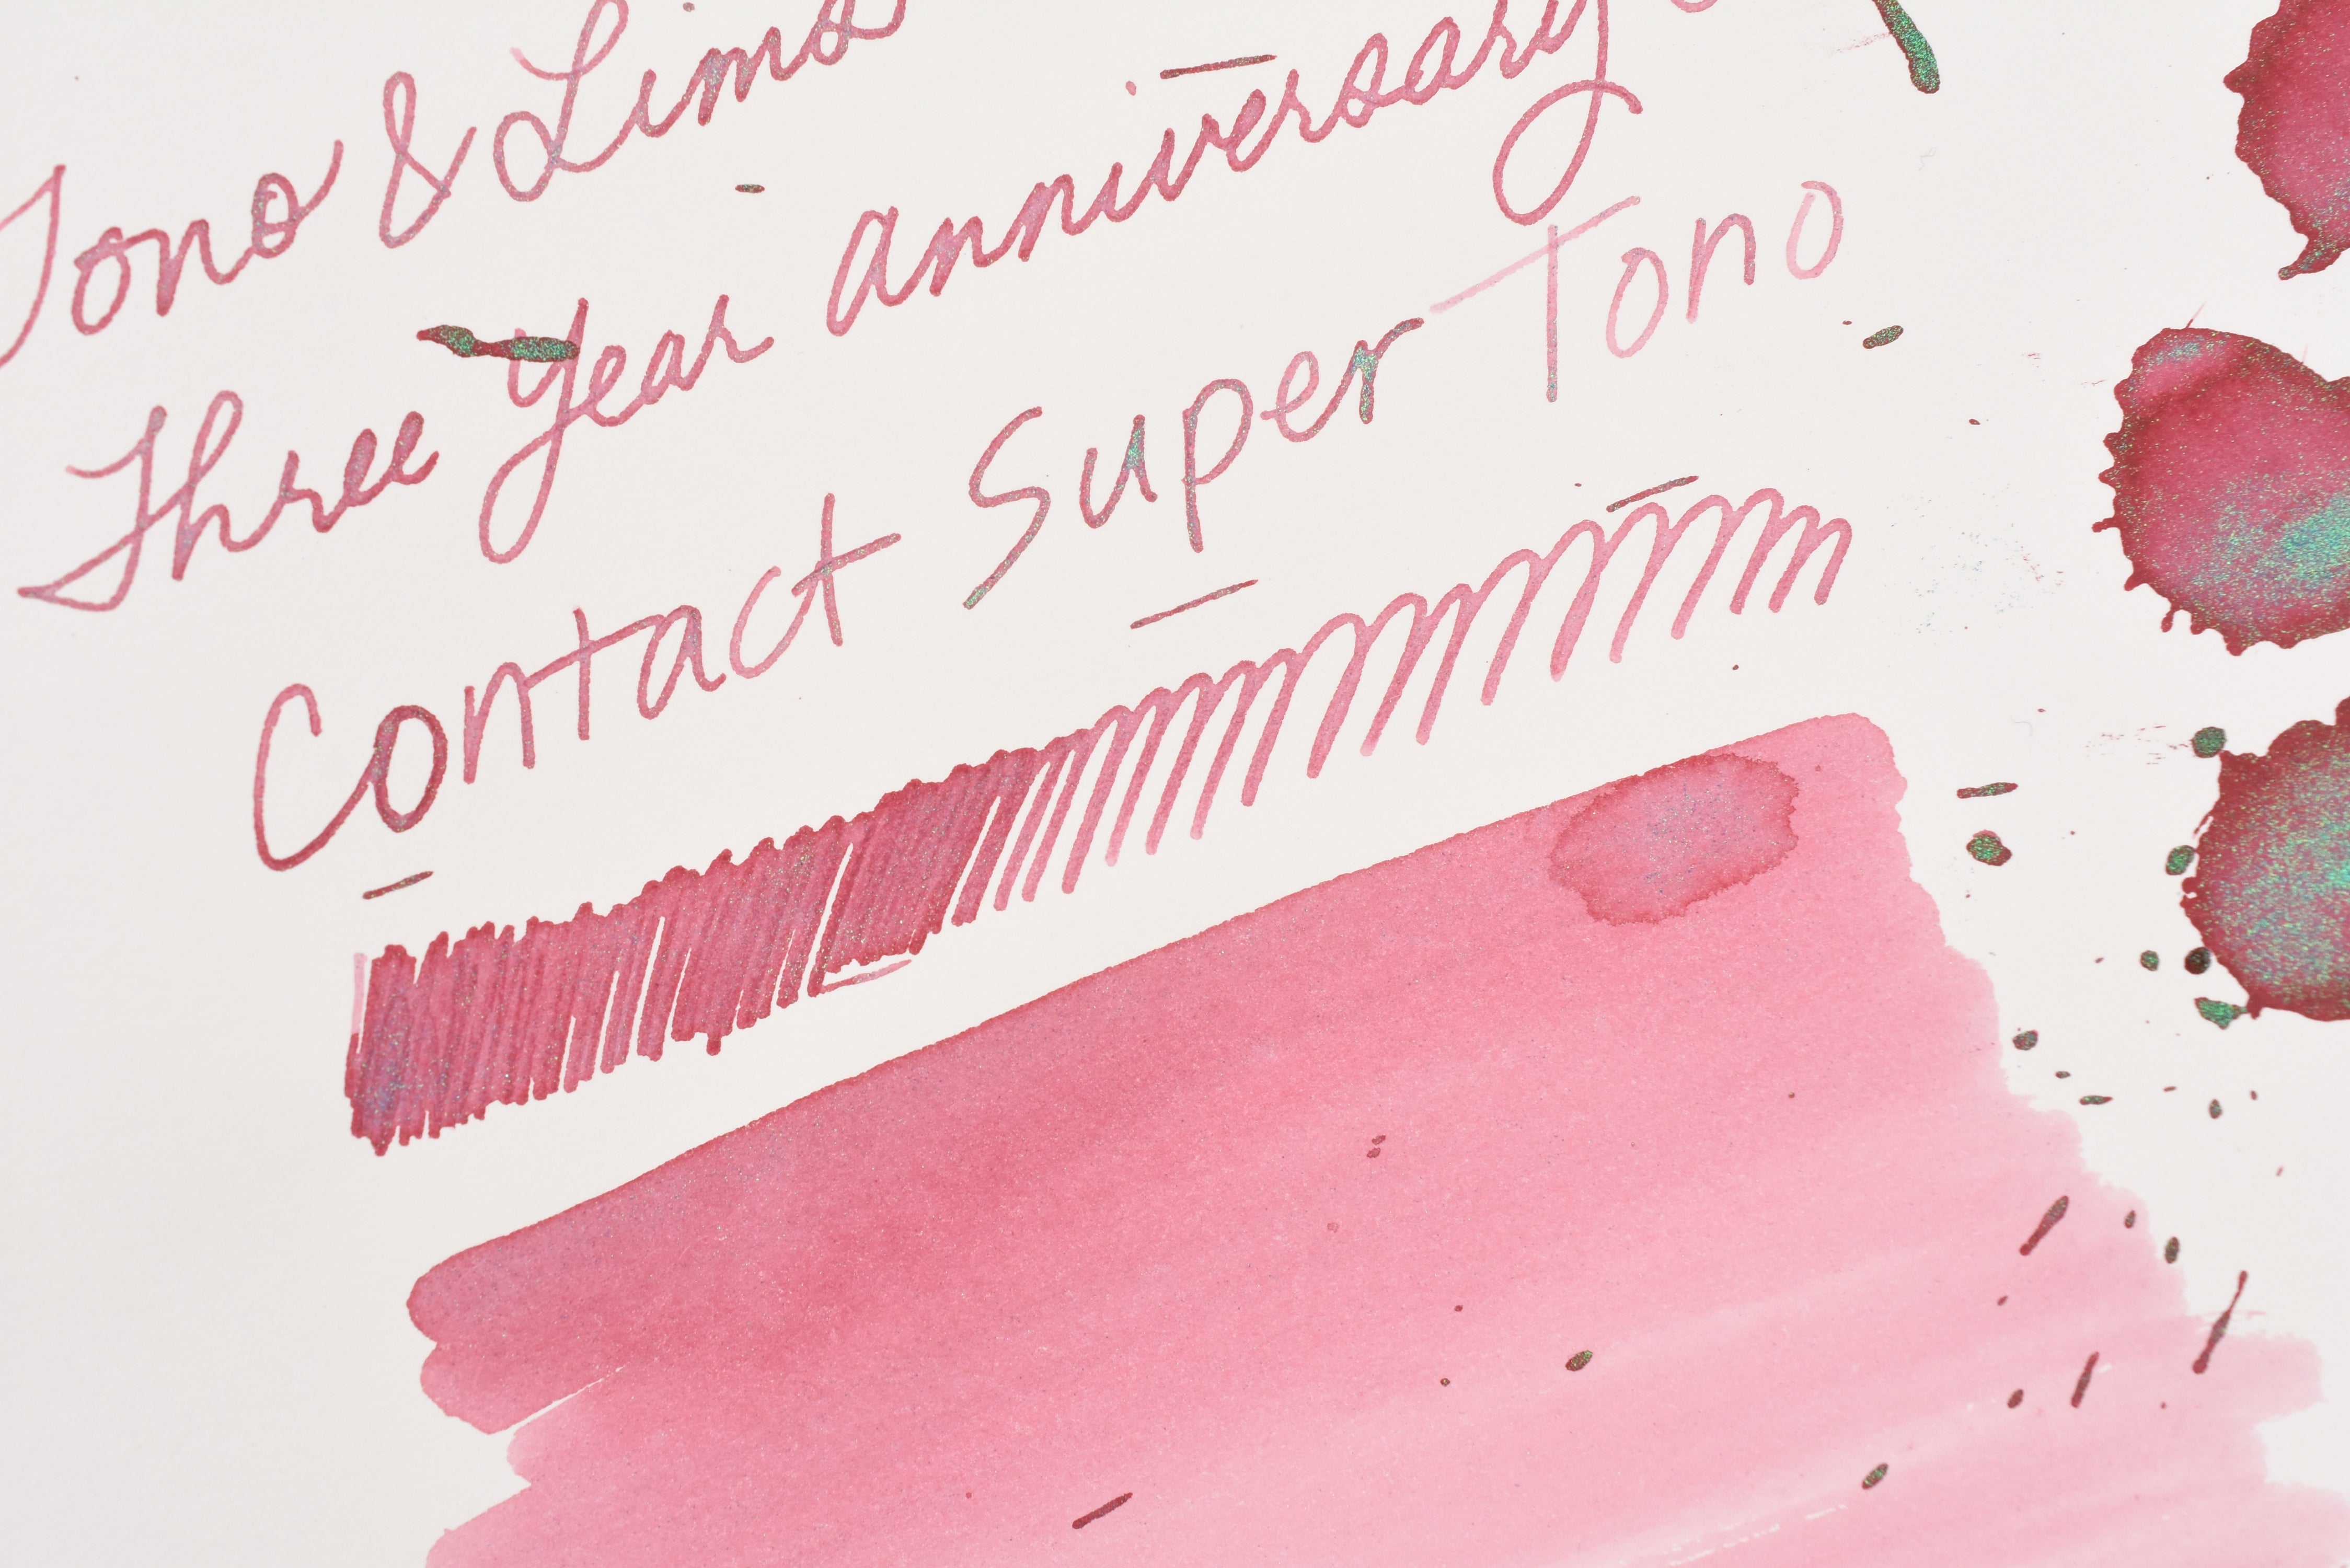 Tono & Lims
Three Year anniversary
Contact Super Tono